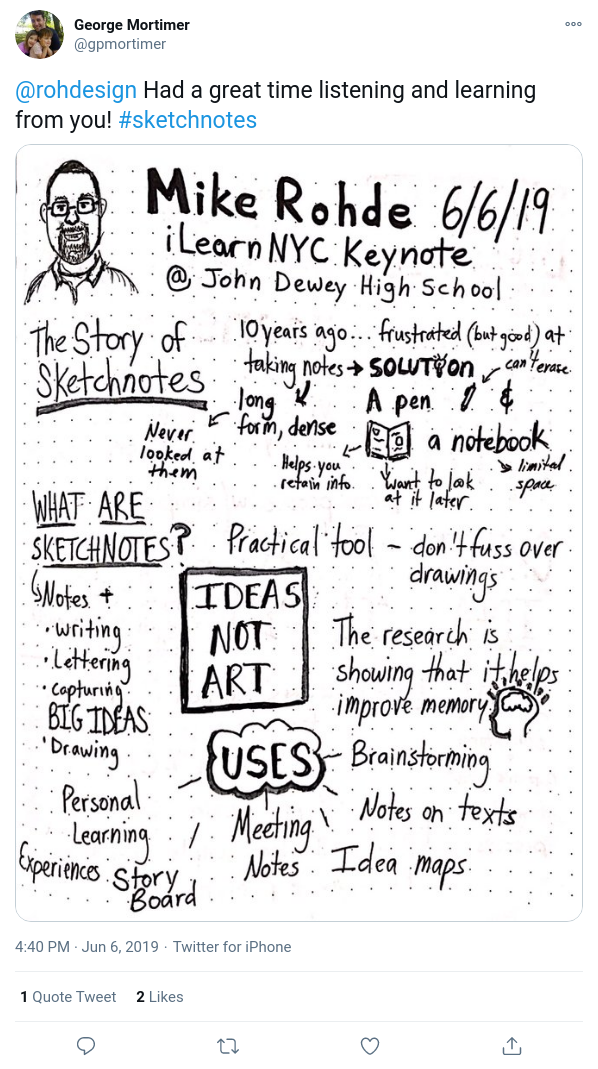 George Mortimer
@gpmortimer
@rohdesign Had a great time listening and learning
from you! #sketchnotes
Mike Rohde 6/6/19
iLearnNYC Keynote
@ John Dewey High School
The Story of
Sketchnotes
10 years ago... frustrated (but good) at
taking notes → SOLUTION
can't erase
long
form, dense
A pen &
a notebook
Never
looked at
them
Helps you
retain info.
Want to look
at it later
limited
space
WHAT ARE
SKETCHNOTES?
Practical tool - don't fuss over
drawings
Notes +
• writing
• Lettering
• capturing
BIG IDEAS
• Drawing
IDEAS
NOT
ART
The research is
showing that it helps
improve memory
USES
Brainstorming
Notes on texts
Idea maps
Meeting
Notes
Personal
Learning
Experiences
Story
Board
4:40 PM · Jun 6, 2019 · Twitter for iPhone
1 Quote Tweet 2 Likes